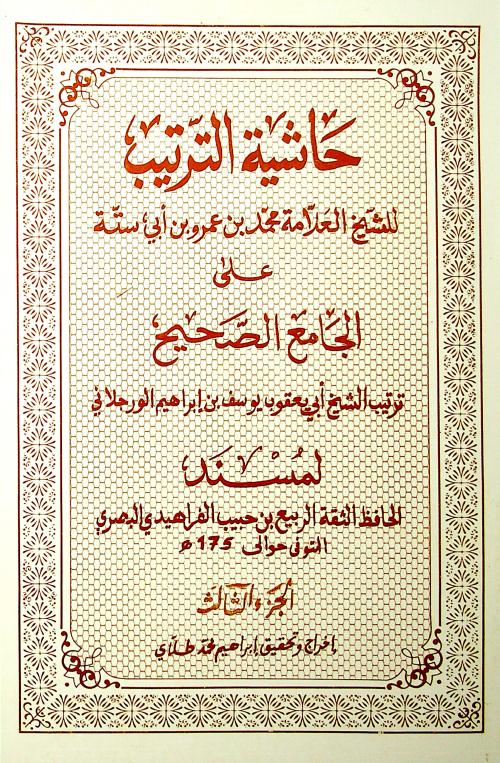 حَاشية التّرتيب
للشيخ العلاّمة محمّد بن عمرو بن أبي ستّة
على
الجامع الصّحيح
ترتيب الشيخ أبي يعقوب يوسف بن إبراهيم الورجلاني
لمُسْنَد
الحافظ الثقة الربيع بن حبيب الفراهيدي البصري
المتوفى حوالى 175 هـ
الجزء الثالث
إخراج وتحقيق إبراهيم محمد طلاّي